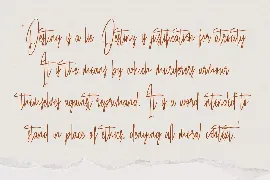 "Destiny is a lie. Destiny is justification for atrocity.
It is the means by which murderers armour
themselves against reprimand. It is a word intended to
stand in place of ethics, denying all moral context."